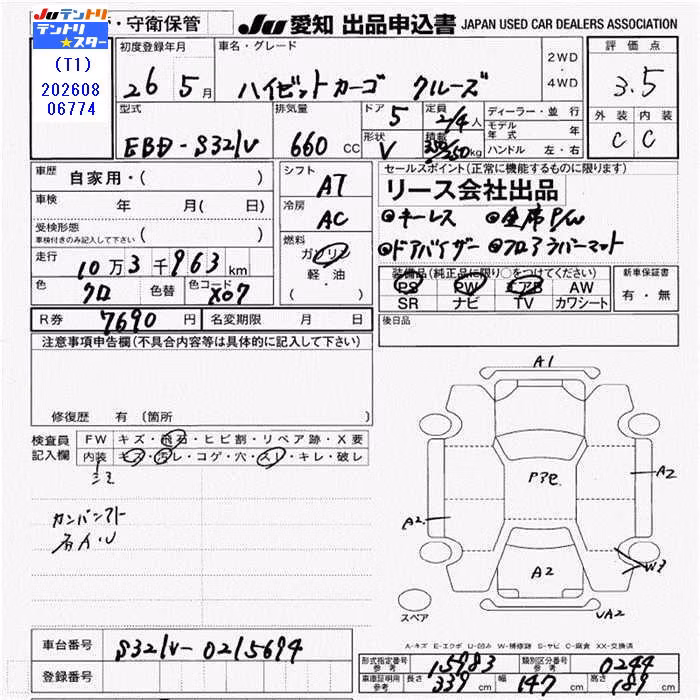 JUテントリ
テントリ★スター
(T1)
202608
06774
・守衛保管
JU 愛知 出品申込書 JAPAN USED CAR DEALERS ASSOCIATION
初度登録年月
26 5月
車名・グレード
ハイゼットカーゴ クルーズ
2WD
・
4WD
評価点
3.5
外装 内装
C C
型式
EBD-S321V
排気量
660 CC
ドア 5
形状 V
定員 2/4 人
積載 350/250 kg
ディーラー・並行
モデル年式 年
ハンドル 左・右
車歴 自家用・( )
車検 年 月( 日)
受検形態
車検付きのみ記入して下さい ( )
走行 10万3千963 km
色 クロ 色替 色コード X07
シフト AT
冷房 AC
燃料
ガソリン
軽・油
( )
セールスポイント(正常に機能するものに限ります)
リース会社出品
◎キーレス ◎全席P/W
◎ドアバイザー ◎フロアラバーマット
装備品(純正品に限り〇をつけてください)
PS PW エアB AW
SR ナビ TV カワシート
新車保証書
有・無
R券 7690円 名変期限 月 日
後日品
注意事項申告欄(不具合内容等は具体的に記入して下さい)
修復歴 有(箇所
検査員
記入欄
FW キズ・飛石・ヒビ割・リペア跡・X要
内装 キズ・汚レ・コゲ・穴・スレ・キレ・破レ
カンバンアト
A1
A2
A2
A2
W3
A2
スペア
A-キズ E-エクボ U-凹み W-補修跡 S-サビ C-腐食 XX-交換済
車台番号 S321V-0215694
登録番号
形式指定番号 参考 15983 類別区分番号 参考 0244
車庫証明用 参考 長さ 339 cm 幅 147 cm 高さ 189 cm